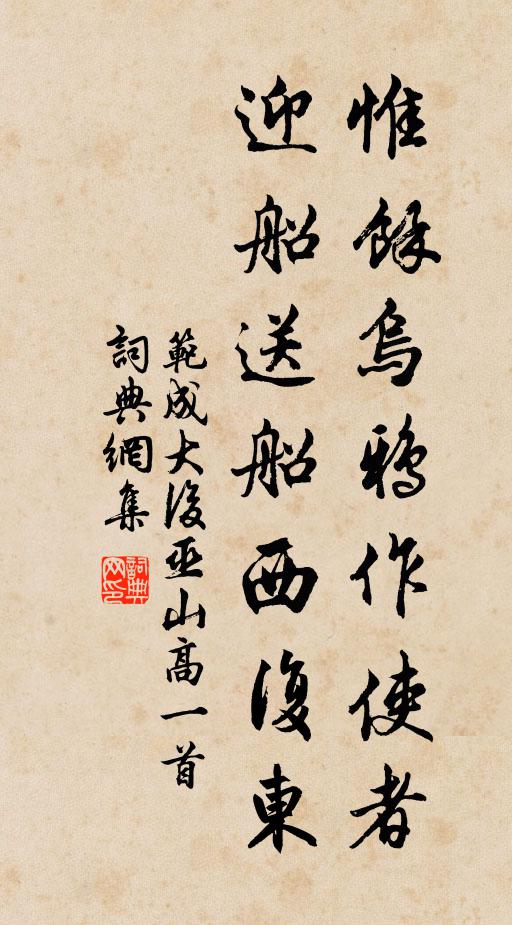 惟餘烏鴉作使者
迎船送船西復東
範成大後巫山高一首
詞典網集
詞典網印